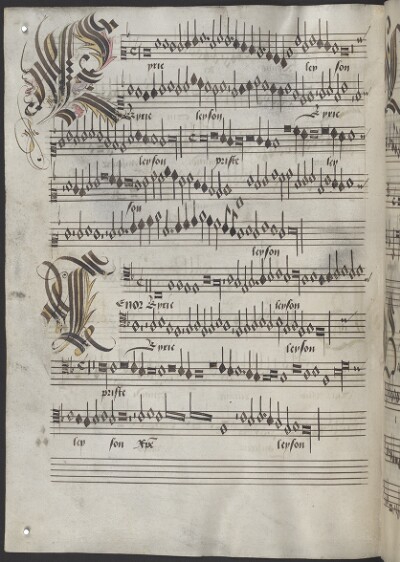 yrie ley son
kyrie leyson kyrie
leyson priste ley
son
leyson
Enor kyrie leyson
kyrie leyson
priste
ley son Xpe leyson